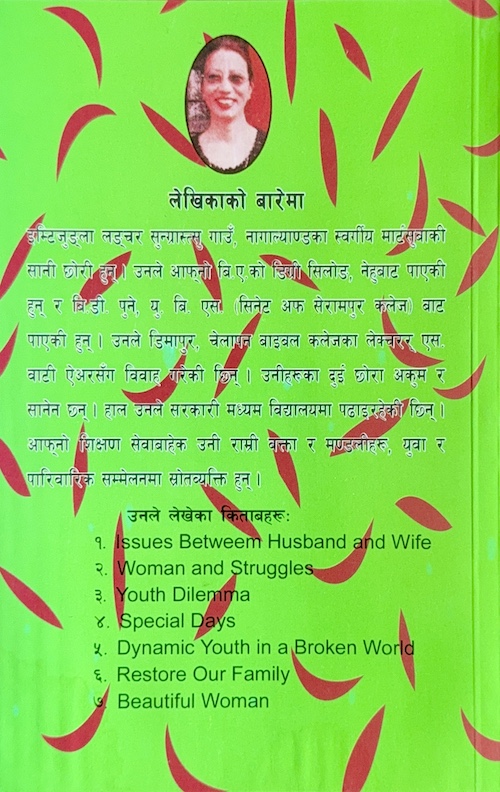 लेखिकाको बारेमा
इम्टिजुङ्ला लङ्चर सुन्ग्रात्सु गाउँ, नागाल्याण्डका स्वर्गीय माटंसुवाकी
सानी छोरी हुन्। उनले आफ्नो बि.ए.को डिग्री सिलोङ, नेहुबाट पाएकी
हुन् र बि.डी. पुने, यु. बि. एस. (सिनेट अफ सेरामपुर कलेज) बाट
पाएकी हुन्। उनले डिमापुर, चेलापन बाइबल कलेजका लेक्चरर् एस.
वाटी ऐअरसँग विवाह गरेकी छिन्। उनीहरूका दुई छोरा अकुम र
सानेन छन्। हाल उनले सरकारी मध्यम विद्यालयमा पढाइरहेकी छिन्।
आफ्नो शिक्षण सेवाबाहेक उनी राम्री वक्ता र मण्डलीहरू, युवा र
पारिवारिक सम्मेलनमा स्रोतव्यक्ति हुन्।
उनले लेखेका किताबहरू:
१. Issues Betweem Husband and Wife
२. Woman and Struggles
३. Youth Dilemma
४. Special Days
५. Dynamic Youth in a Broken World
६. Restore Our Family
७. Beautiful Woman